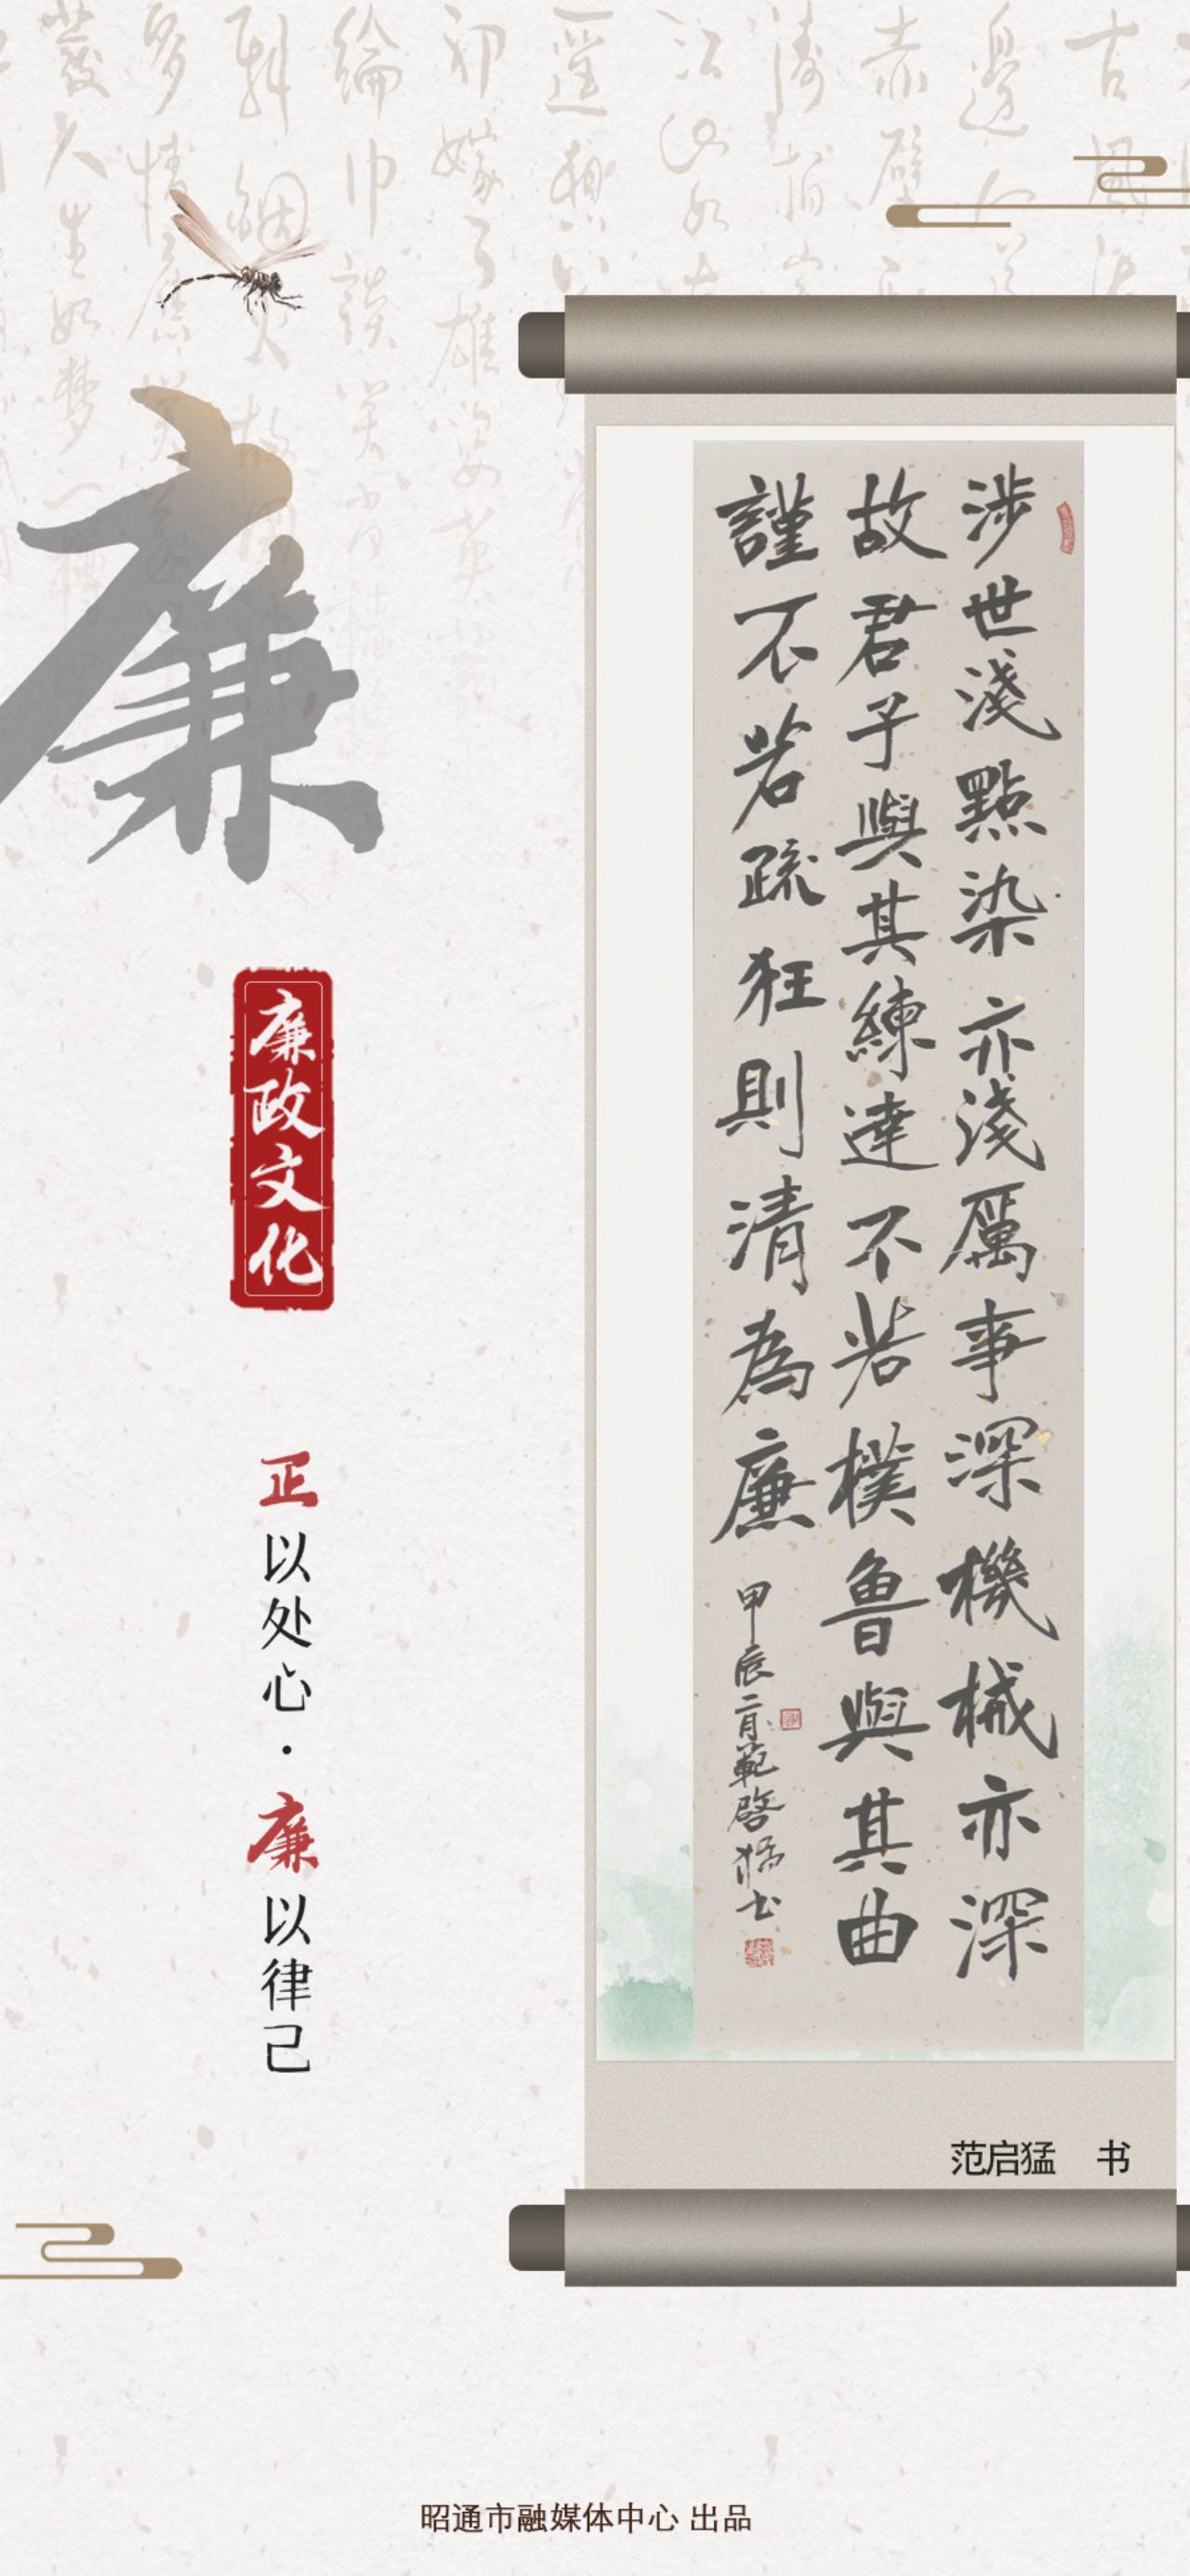 廉
廉政文化
正以处心·廉以律己
涉世淺點染亦淺厲事深機械亦深
故君子與其練達不若樸魯與其曲
謹不若疏狂則清為廉
甲辰二月範啓猛书
范启猛 书
昭通市融媒体中心 出品